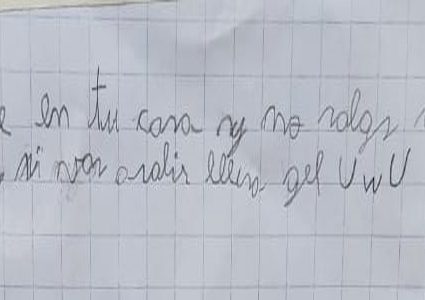 en tu casa y no salgas
si vas a salir lleva gel UwU